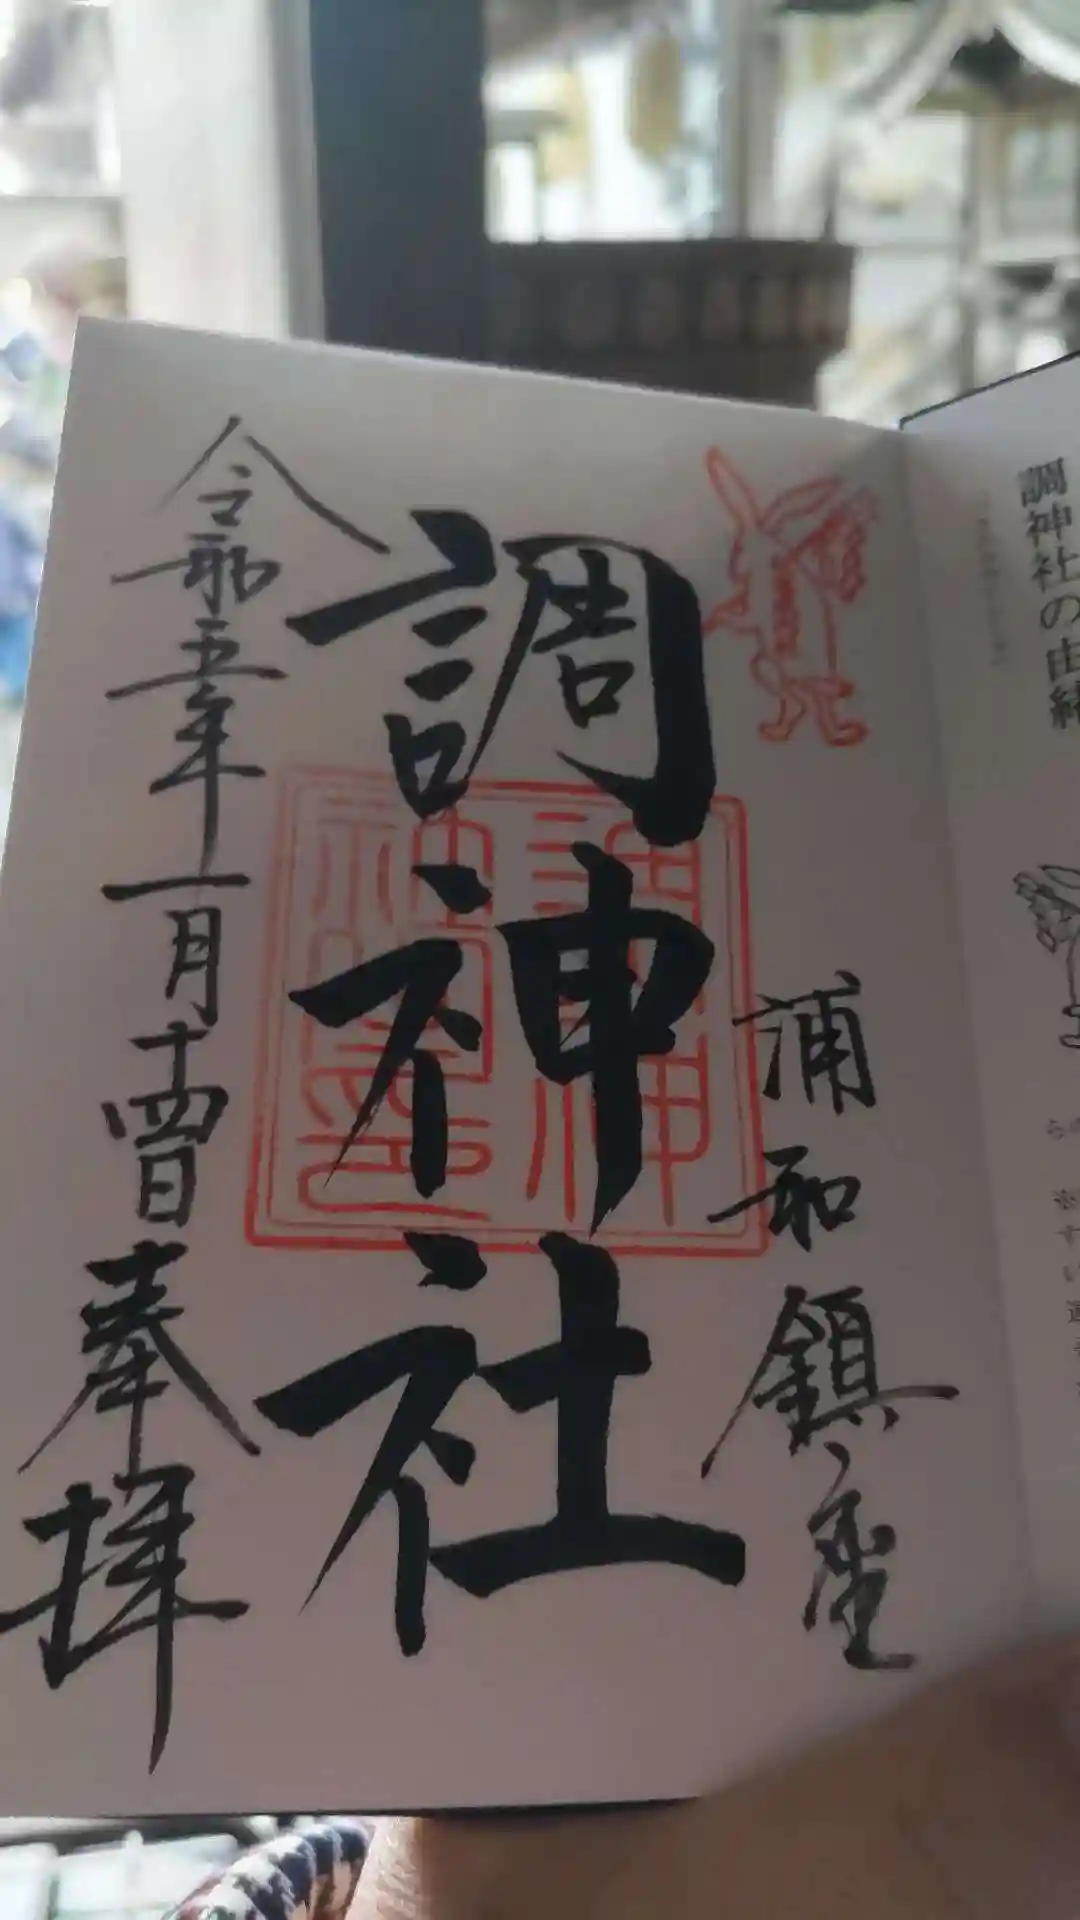 調神社の由緒
浦和鎮座
調神社
調神
社印
令和五年一月十四日奉拝